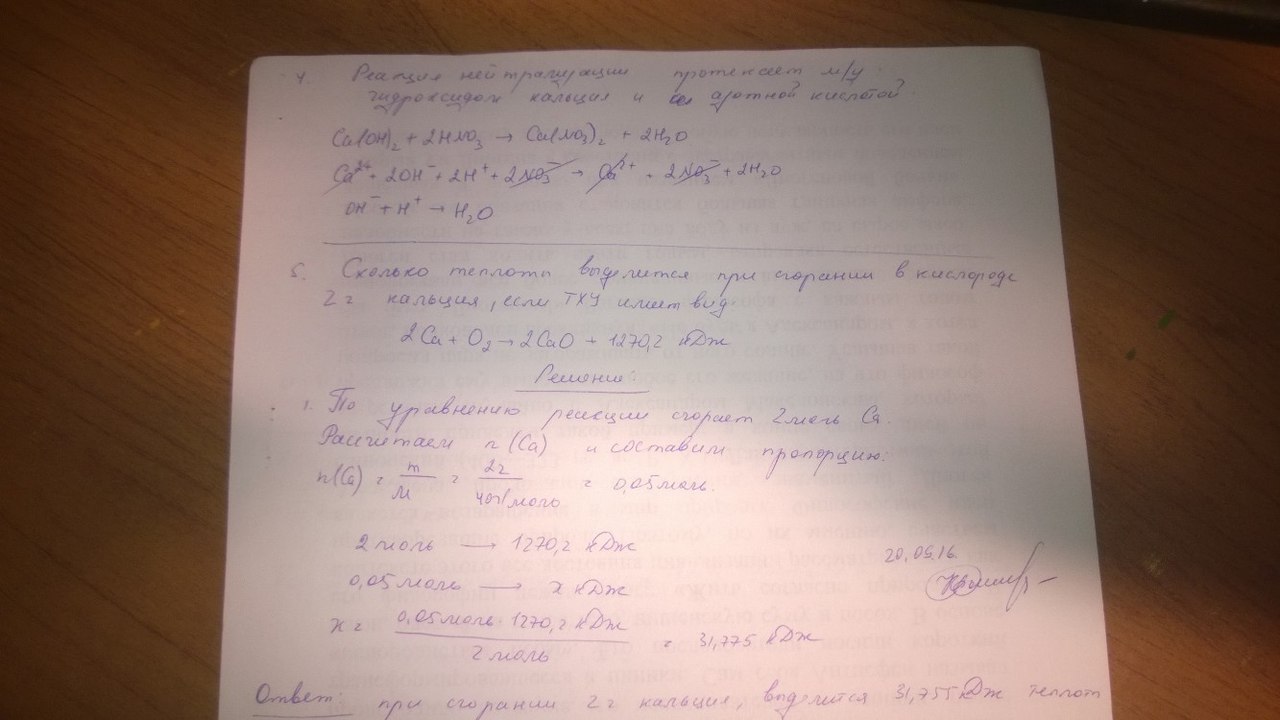 4. Реакция нейтрализации протекает м/у
гидроксидом кальция и азотной кислотой.
Ca(OH)₂ + 2HNO₃ → Ca(NO₃)₂ + 2H₂O
Ca²⁺ + 2OH⁻ + 2H⁺ + 2NO₃⁻ → Ca²⁺ + 2NO₃⁻ + 2H₂O
OH⁻ + H⁺ → H₂O
5. Сколько теплоты выделится при сгорании в кислороде
2 г кальция, если ТХУ имеет вид
2Ca + O₂ → 2CaO + 1270,2 кДж
Решение
1. По уравнению реакции сгорает 2 моль Ca.
Рассчитаем n(Ca) и составим пропорцию:
n(Ca) = m/M = 2г/40г/моль = 0,05 моль.
2 моль → 1270,2 кДж
20.05.16.
0,05 моль → x кДж
x = 0,05 моль · 1270,2 кДж / 2 моль = 31,775 кДж
Ответ: при сгорании 2 г кальция, выделится 31,755 кДж теплот